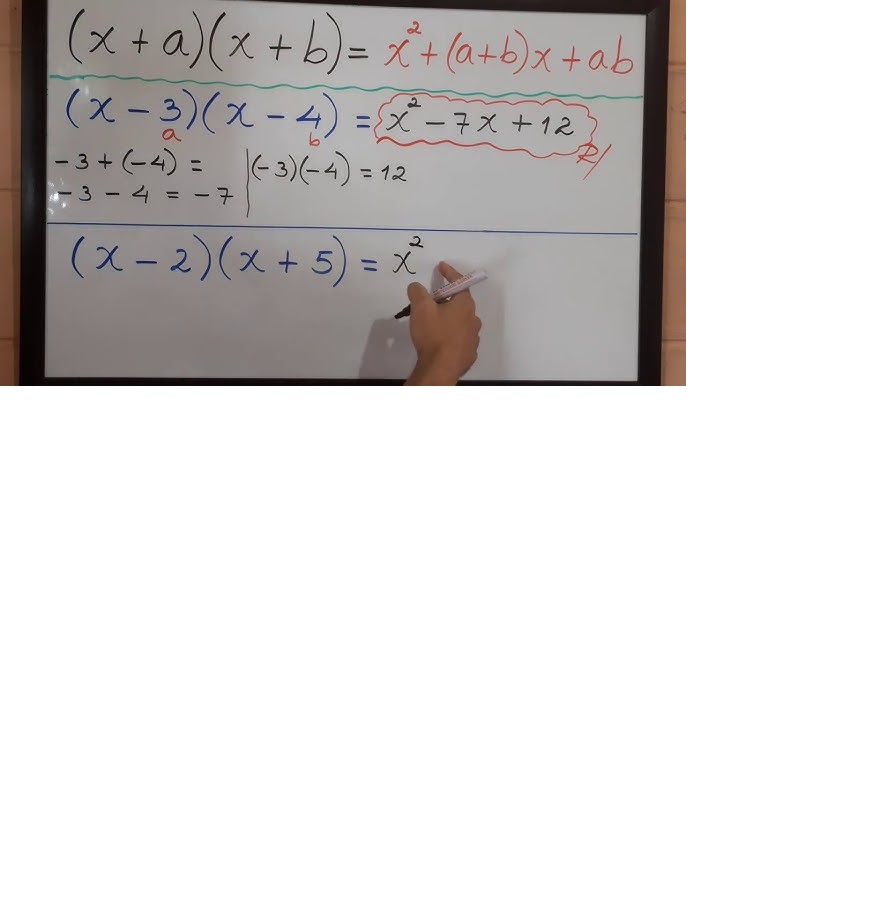 (x + a)(x + b) = x² + (a+b)x + ab
(x - 3)(x - 4) = x² - 7x + 12
a b R/
-3 + (-4) = | (-3)(-4) = 12
-3 - 4 = -7
(x - 2)(x + 5) = x²